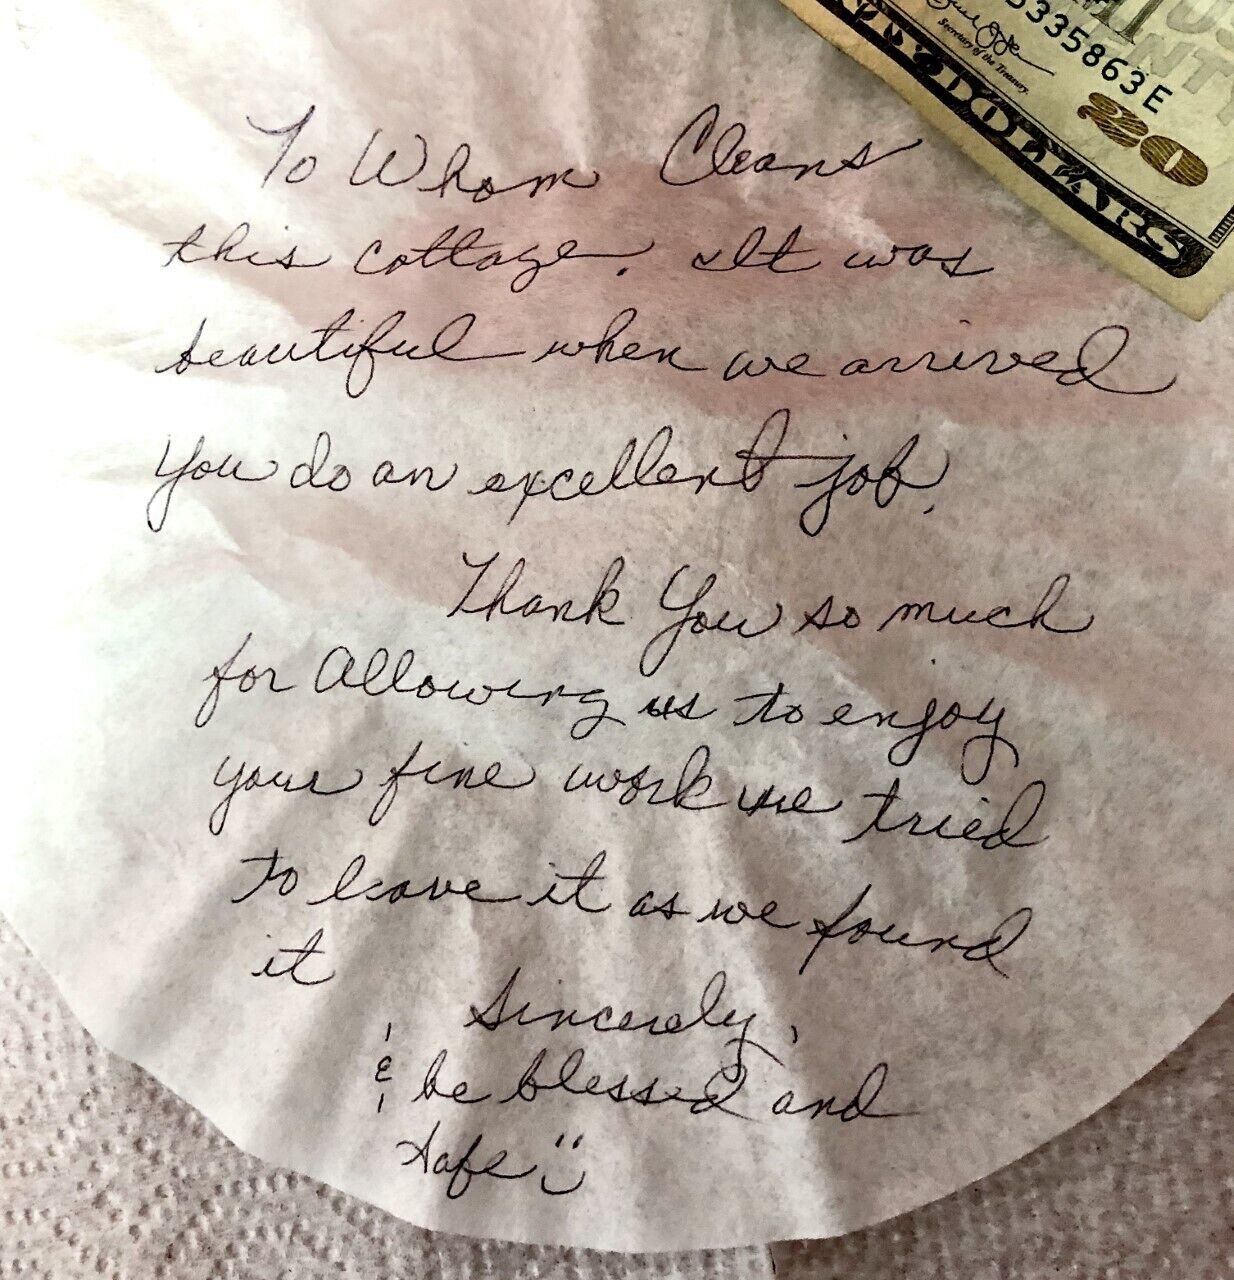 Secretary of the Treasury.
5335863E
20
DOLLARS
To Whom Cleans
this cottage. It was
beautiful when we arrived
You do an excellent job.
Thank You so much
for Allowing us to enjoy
your fine work we tried
to leave it as we found
it
Sincerely,
& be blessed and
safe :)